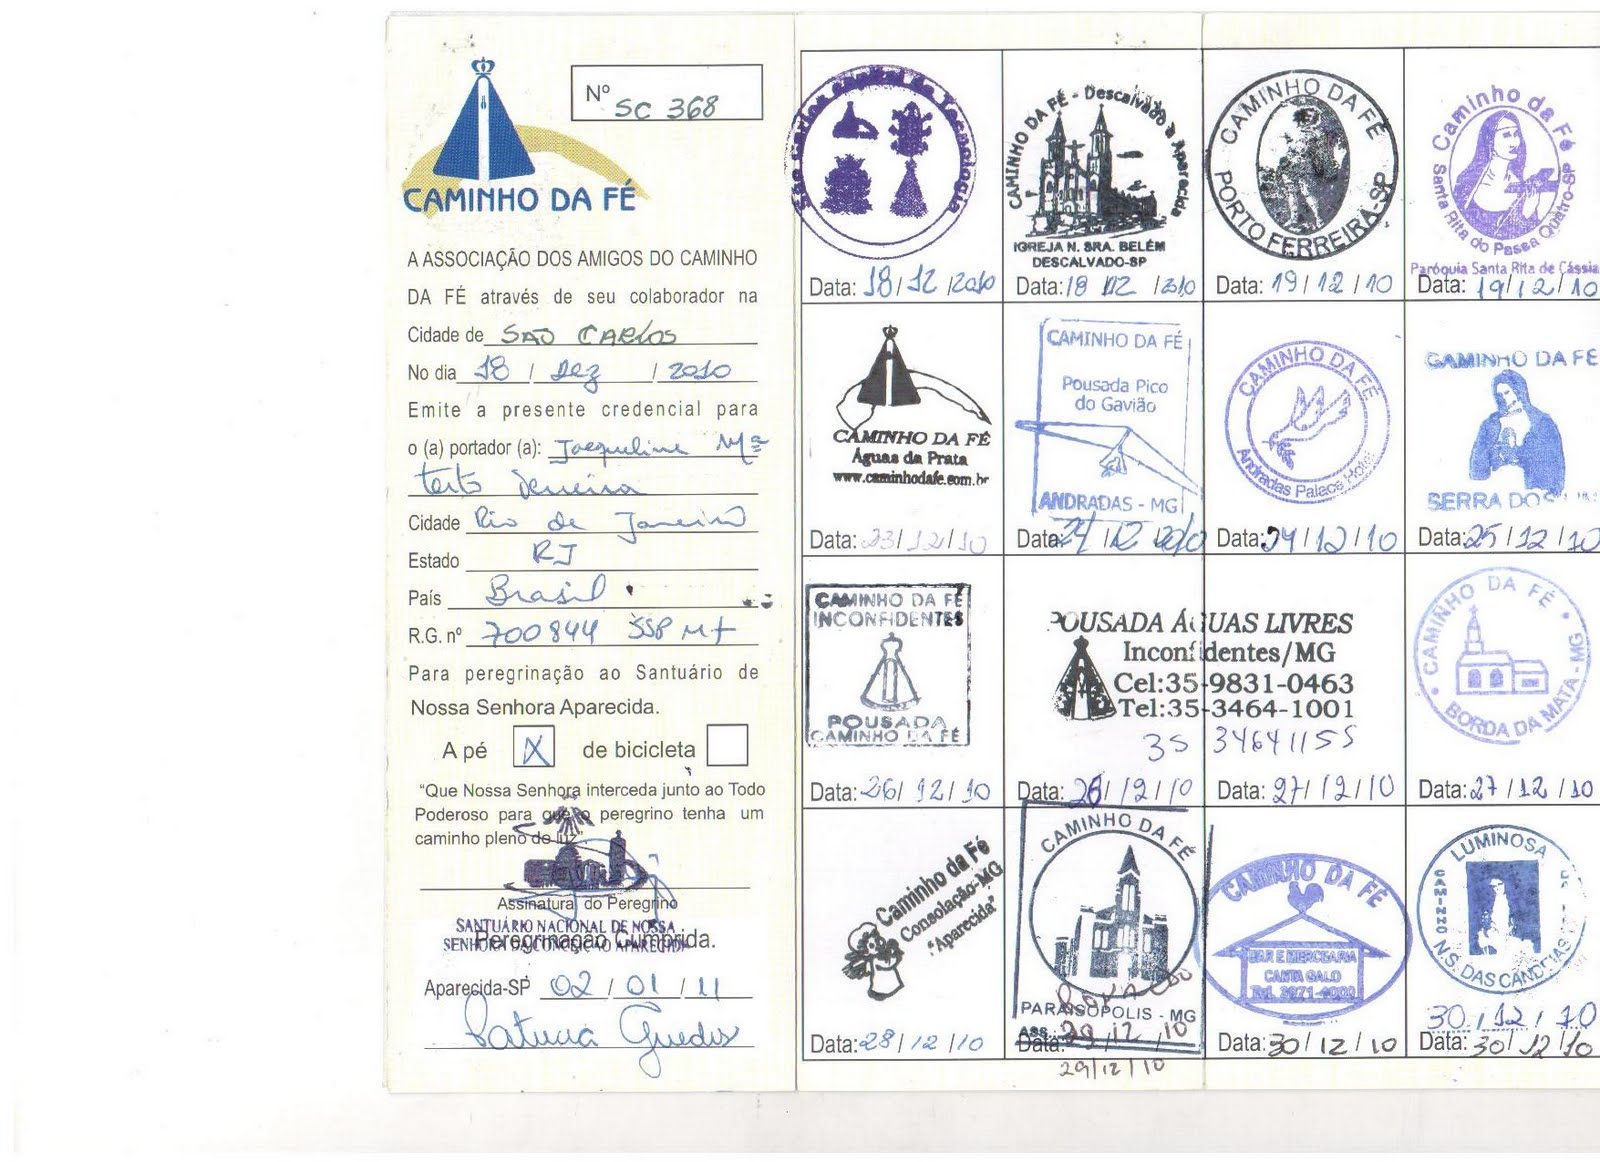 Nº SC 368
CAMINHO DA FÉ
A ASSOCIAÇÃO DOS AMIGOS DO CAMINHO
DA FÉ através de seu colaborador na
Cidade de SÃO CARLOS
No dia 18 / Dez / 2010
Emite a presente credencial para
o (a) portador (a): Jacqueline Mª
Cidade Rio de Janeiro
Estado RJ
País Brasil
R.G. nº 700844 SSP MT
Para peregrinação ao Santuário de
Nossa Senhora Aparecida.
A pé X de bicicleta
“Que Nossa Senhora interceda junto ao Todo
Poderoso para que o peregrino tenha um
caminho pleno de luz”
Assinatura do Peregrino
SANTUÁRIO NACIONAL DE NOSSA
SENHORA DA CONCEIÇÃO APARECIDA
Peregrinação Cumprida.
Aparecida-SP 02 / 01 / 11
Patricia Guedes
São Carlos Capital da Tecnologia
Data: 18 / 12 / 2010
CAMINHO DA FÉ - Descalvado à Aparecida
IGREJA N. SRA. BELÉM
DESCALVADO-SP
Data: 18 12 / 2010
CAMINHO DA FÉ
PORTO FERREIRA-SP
Data: 19 / 12 / 10
Caminho da Fé
Santa Rita do Passa Quatro-SP
Paróquia Santa Rita de Cássia
Data: 19 / 12 / 10
CAMINHO DA FÉ
Águas da Prata
www.caminhodafe.com.br
Data: 23 / 12 / 10
CAMINHO DA FÉ
Pousada Pico
do Gavião
ANDRADAS - MG
Data: 24 / 12 2010
CAMINHO DA FÉ
Andradas Palace Hotel
Data: 24 / 12 / 10
CAMINHO DA FÉ
SERRA DOS
Data: 25 / 12 / 10
CAMINHO DA FÉ
INCONFIDENTES
POUSADA
CAMINHO DA FÉ
Data: 26 / 12 / 10
POUSADA ÁGUAS LIVRES
Inconfidentes/MG
Cel:35-9831-0463
Tel:35-3464-1001
35 34641155
Data: 26 / 12 / 10
Data: 27 / 12 / 10
CAMINHO DA FÉ
BORDA DA MATA - MG
Data: 27 / 12 / 10
Caminho da Fé
Consolação-MG
"Aparecida"
Data: 28 / 12 / 10
CAMINHO DA FÉ
PARAISÓPOLIS - MG
ASS.
Data: 29 / 12 / 10
29/12/10
CAMINHO DA FÉ
BAR E MERCEARIA
CANTA GALO
Data: 30 / 12 / 10
LUMINOSA
CAMINHO
N.S. DAS CANDEIAS
30 / 12 / 10
Data: 30 / 12 / 10